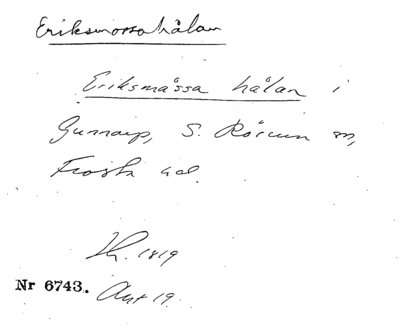 Eriksmossahålan
Eriksmåssa hålan i
Gunnarp, S. Rörum sn,
Frosta hd.
1819
Nr 6743. Akt 19.